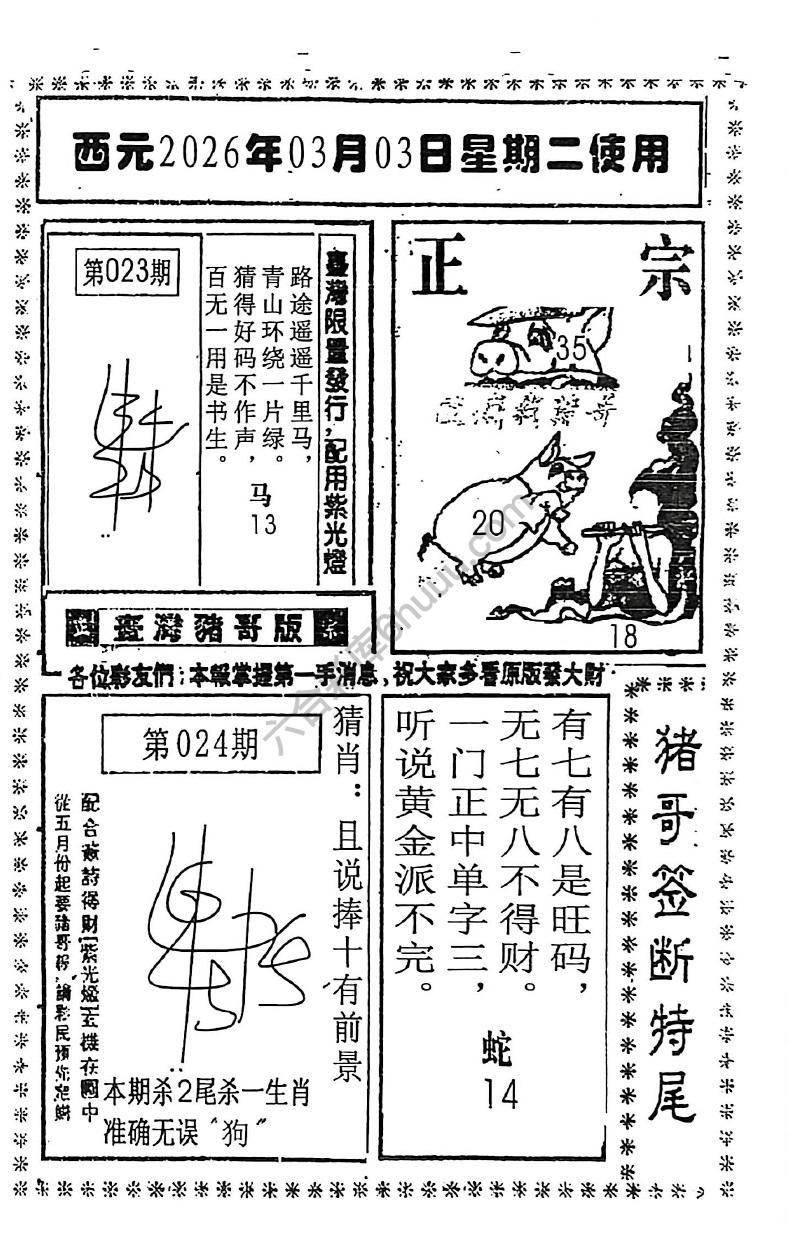 西元2026年03月03日星期二使用
第023期
臺灣限量發行，配用紫光燈
路途遥遥千里马，
青山环绕一片绿。
猜得好码不作声，
百无一用是书生。
马
13
正宗
35
20
18
臺灣豬哥版
各位彩友們：本報掌握第一手消息，祝大家多看原版發大財
第024期
猜肖：且说捧十有前景
本期杀2尾杀一生肖
准确无误“狗”
有七有八是旺码，
无七无八不得财。
一门正中单字三，
听说黄金派不完。
蛇
14
猪哥签断特尾
六合
6huu.com